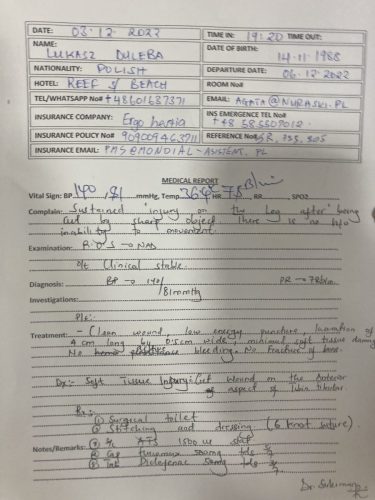 DATE: 03.12.2022 TIME IN: 19:20 TIME OUT:
NAME: LUKASZ DULEBA DATE OF BIRTH: 14.11.1988
NATIONALITY: POLISH DEPARTURE DATE: 06.12.2022
HOTEL: REEF & BEACH ROOM No#
TEL/WHATSAPP No# +48601687371 EMAIL: AGATA@NURASKI.PL
INSURANCE COMPANY: Ergo hestia INS EMERGENCE TEL No# +48 58 5507012
INSURANCE POLICY No# REFERENCE No#
INSURANCE EMAIL:
MEDICAL REPORT
Vital Sign: BP 140/81 mmHg, Temp 36.4°C HR 78 B/min RR SPO2
Complain: Sustained injury on the leg after being
Cut by sharp object. There is no h/o
inability to movement.
Examination: R.O.S → NAD
O/E Clinical stable.
BP → 140/81mmHg PR → 78b/m
Diagnosis:
Investigations:
P/E:
Treatment: - Clean wound, low energy puncture, laceration of
4 cm long by 0.5cm wide, minimal soft tissue damage
No active bleeding. No fracture of bone.
Dx: Soft Tissue Injury: Cut wound on the Anterior
aspect of Tibia
Rx:
① Surgical toilet
② Stitching and dressing (6 knot suture).
Notes/Remarks: ③ ATS 1500 iu stat
④ Cap 500mg tds
⑤ Tab Diclofenac 50mg tds
Dr Suleiman